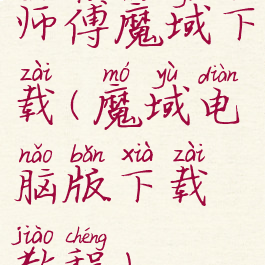 师傅魔域下
zài mó yù diàn
载(魔域电
nǎo bǎn xià zài
脑版下载
jiào chéng
教程)